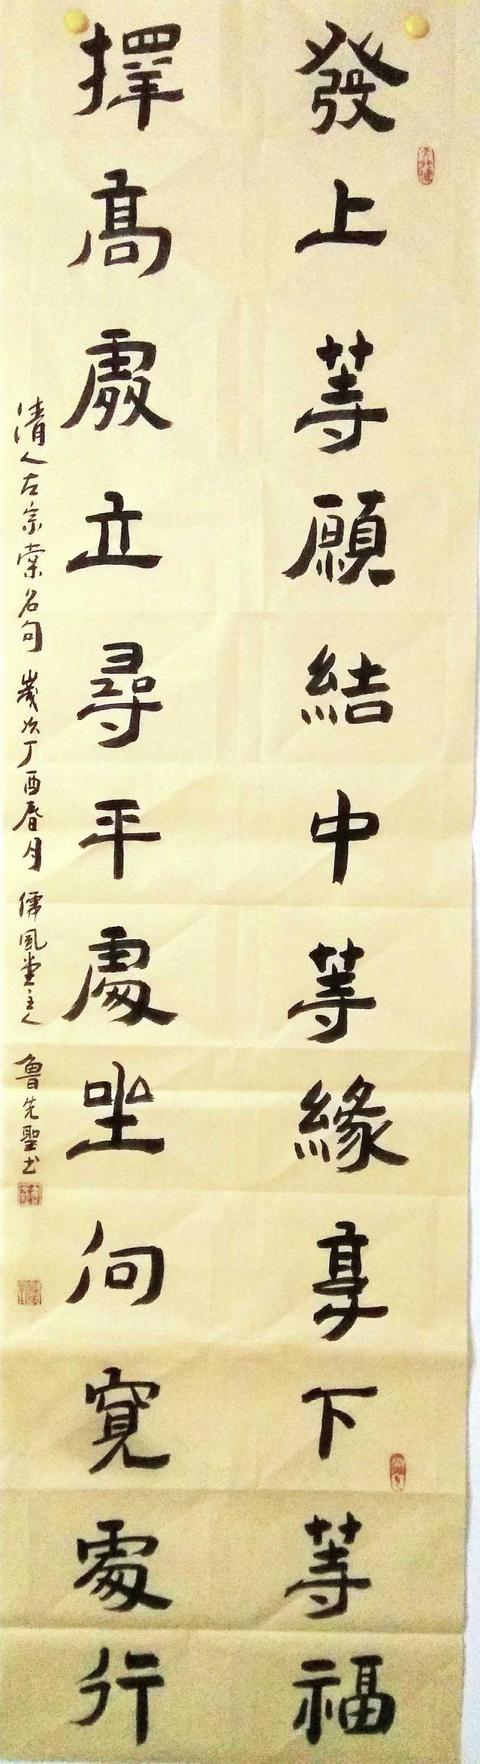 發上等願結中等緣享下等福
擇高處立尋平處坐向寬處行
清人左宗棠名句 歲次丁酉春月 儒風堂主人 魯先聖書